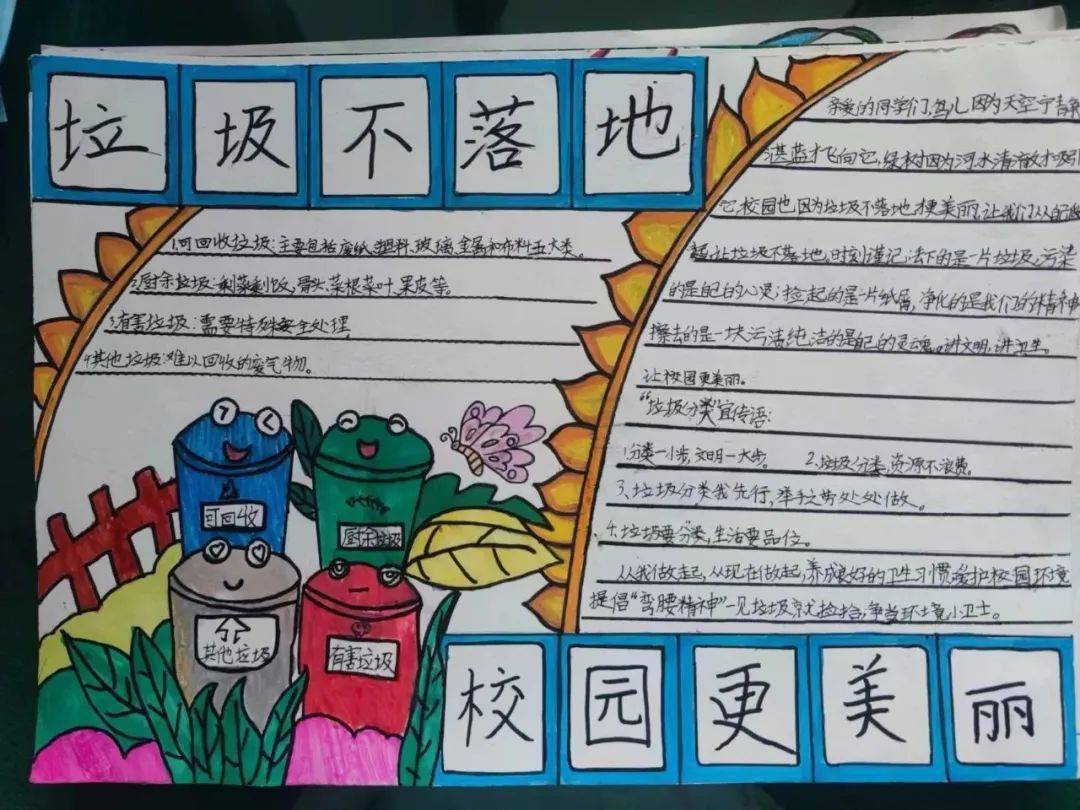 垃圾不落地
1.可回收垃圾:主要包括废纸,塑料,玻璃,金属和布料五大类。
2.厨余垃圾:剩菜剩饭,骨头,菜根菜叶,果皮等。
3.有害垃圾:需要特殊安全处理
4.其他垃圾:难以回收的废气物。
可回收
厨余垃圾
其他垃圾
有害垃圾
亲爱的同学们,鸟儿因为天空宁静
湛蓝才飞向它,绿树因为河水清澈才吸
它,校园也因为垃圾不落地,才更美丽,让我们从自己做
起,让垃圾不落地,时刻谨记:丢下的是一片垃圾,污染
的是自己的心灵;捡起的是一片纸屑,净化的是我们的精神
擦去的是一块污渍,纯洁的是自己的灵魂。讲文明,讲卫生。
让校园更美丽。
“垃圾分类”宣传语:
1.分类一小步,文明一大步。 2.垃圾分类,资源不浪费。
3、垃圾分类我先行,牵手文明处处做。
4.垃圾要分类,生活要品位。
从我做起,从现在做起,养成良好的卫生习惯,爱护校园环境
提倡“弯腰精神”一见垃圾就捡拾,争当环境小卫士。
校园更美丽